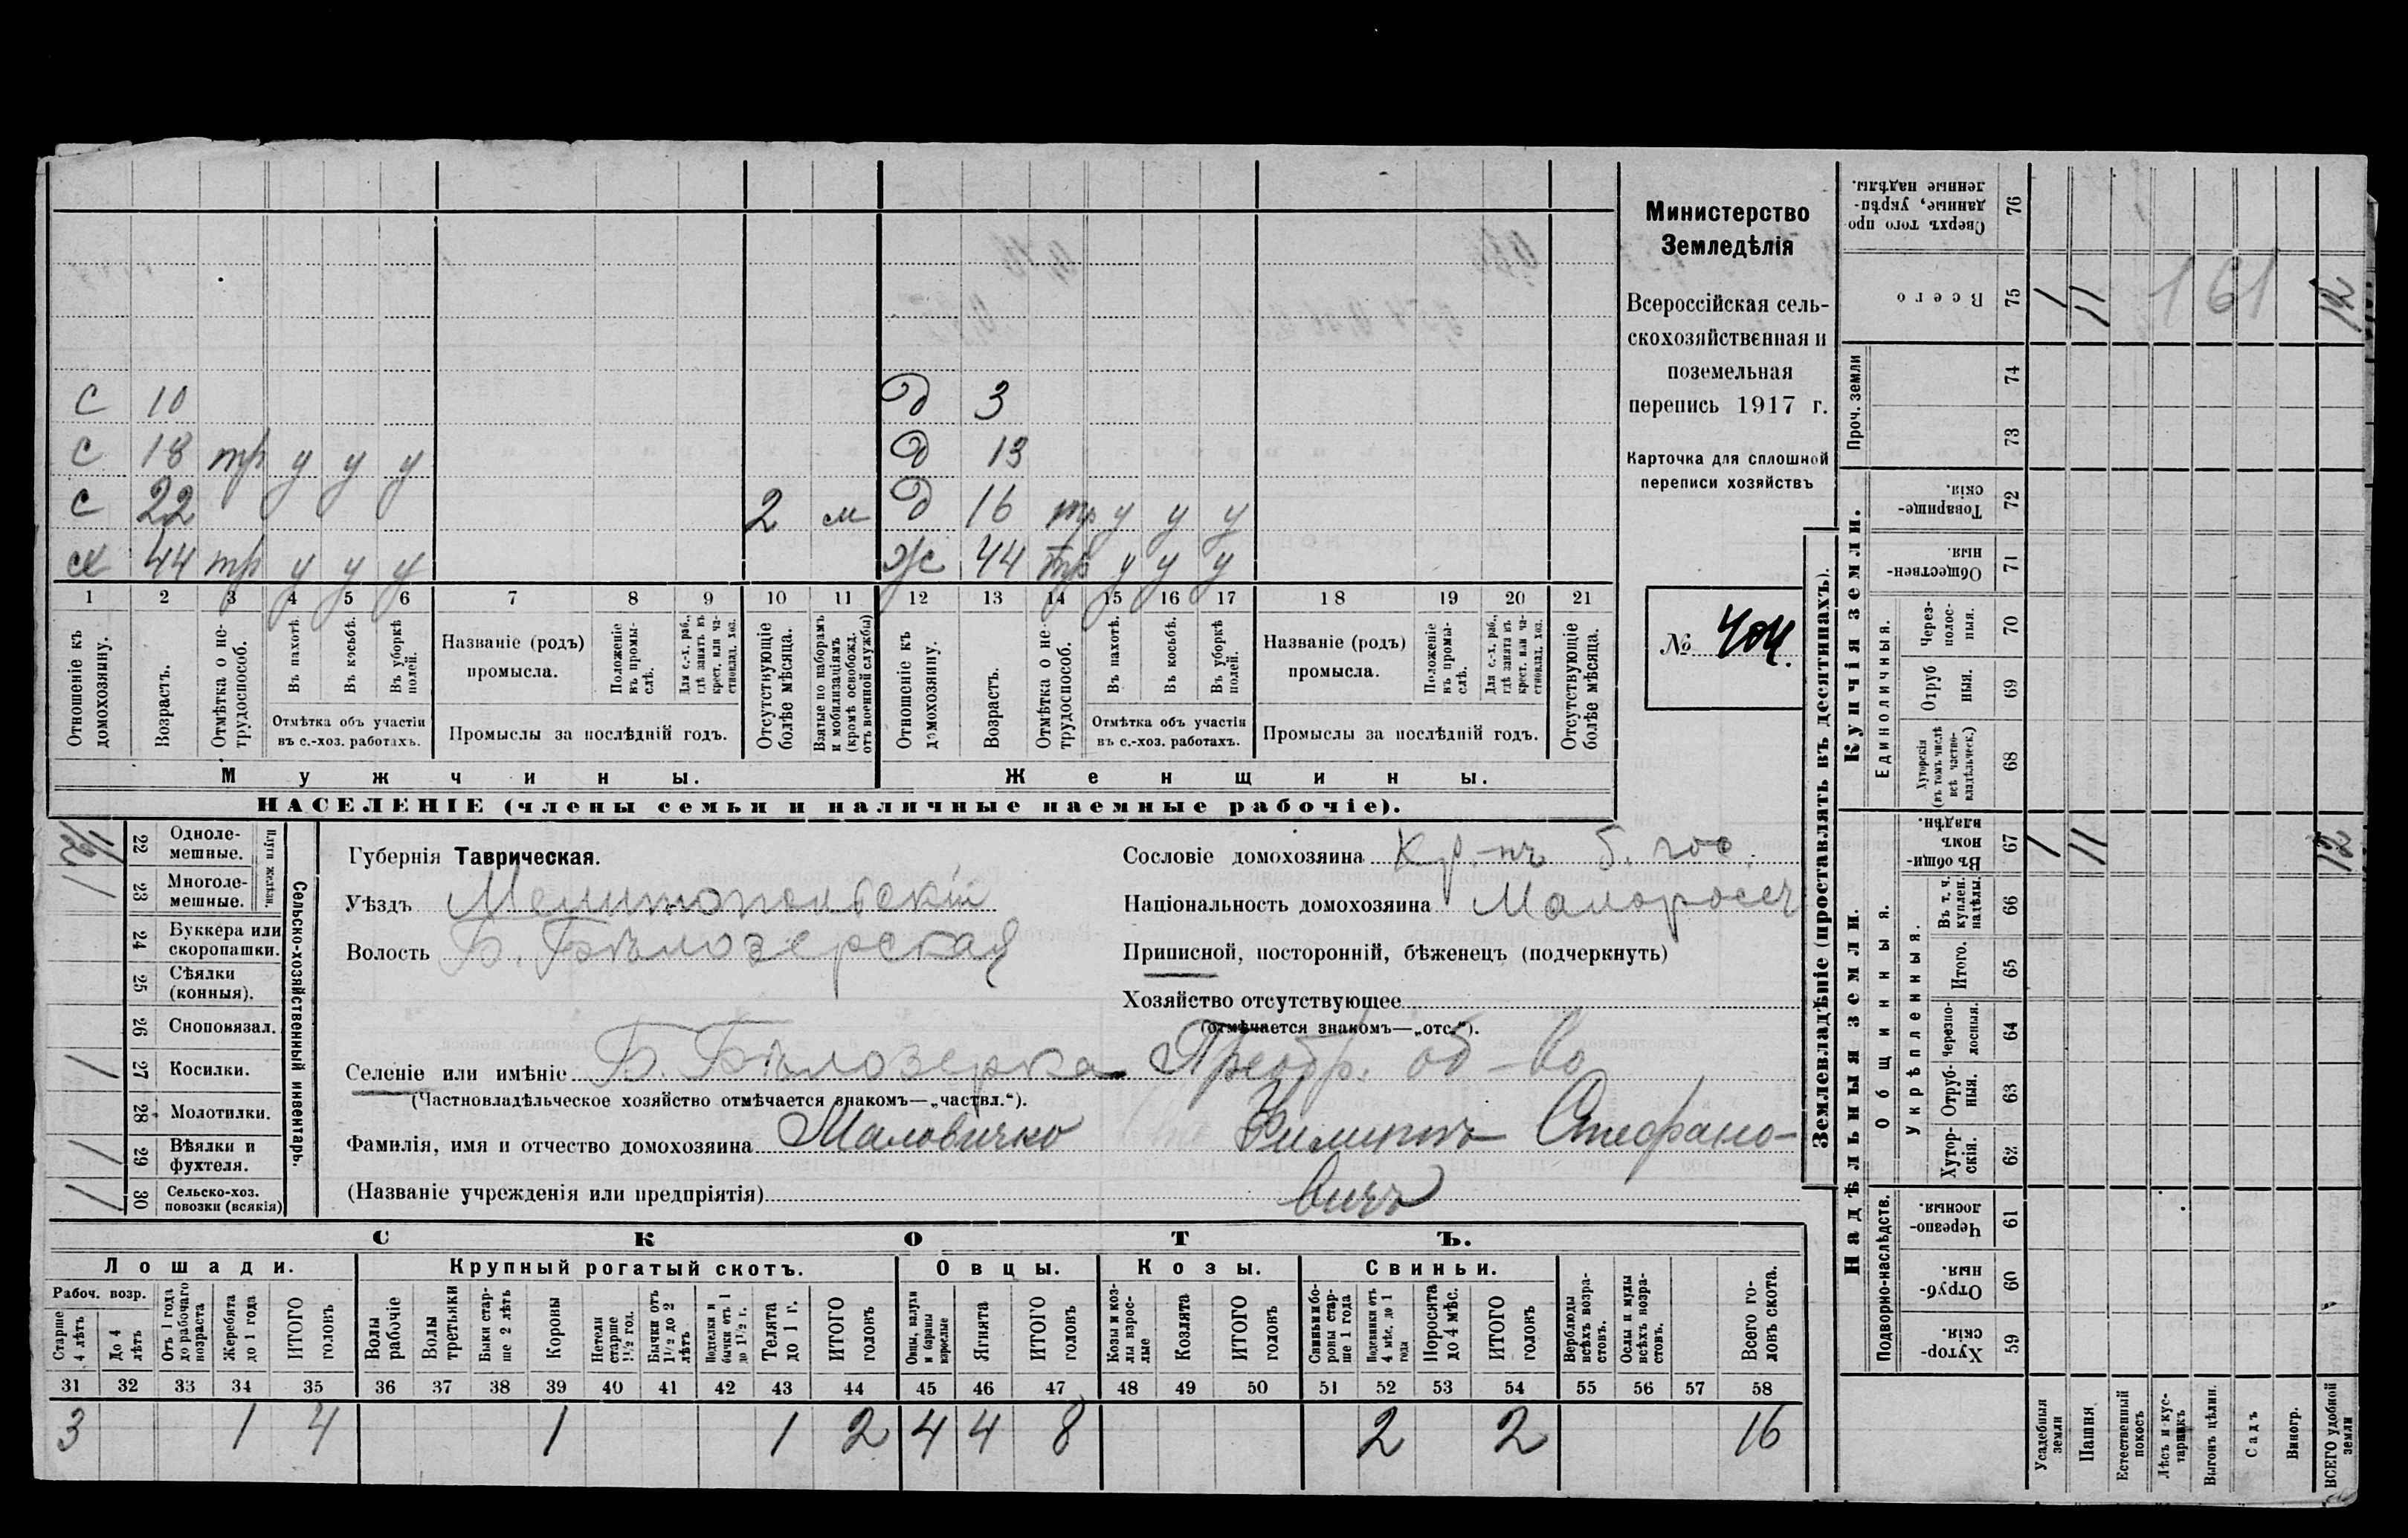 С 10 Д 3
С 18 тр у у у Д 13
С 22 2 м Д 16 тр у у у
х 44 тр у у у Ж 44 тр у у у
1 2 3 4 5 6 7 8 9 10 11 12 13 14 15 16 17 18 19 20 21
Отношеніе къ домохозяину.
Возрастъ.
Отмѣтка о не-трудоспособ.
Въ пахотѣ.
Въ косьбѣ.
Въ уборкѣ полей.
Отмѣтка объ участіи въ с.-хоз. работахъ.
Названіе (родъ) промысла.
Положеніе въ промы-слѣ.
Для с.-х. раб., гдѣ занятъ въ крест. или ча-стновлад. хоз.
Промыслы за послѣдній годъ.
Отсутствующіе болѣе мѣсяца.
Взятые по наборамъ и мобилизаціямъ (кромѣ освобожд. отъ военной службы)
Отношеніе къ домохозяину.
Возрастъ.
Отмѣтка о не трудоспособ.
Въ пахотѣ.
Въ косьбѣ.
Въ уборкѣ полей.
Отмѣтка объ участіи въ с.-хоз. работахъ.
Названіе (родъ) промысла.
Положеніе въ промы-слѣ.
Для с.-х. раб., гдѣ занятъ въ крест. или ча-стновлад. хоз.
Промыслы за послѣдній годъ.
Отсутствующіе болѣе мѣсяца.
Мужчины. Женщины.
НАСЕЛЕНІЕ (члены семьи и наличные наемные рабочіе).
Министерство
Земледѣлія
Всероссійская сель-
скохозяйственная и
поземельная
перепись 1917 г.
Карточка для сплошной
переписи хозяйствъ
№
Сельско-хозяйственный инвентарь.
Плуги желѣзн.
22 Одноле-мешные.
1 23 Многоле-мешные.
24 Буккера или скоропашки.
25 Сѣялки (конныя).
26 Сноповязал.
1 27 Косилки.
28 Молотилки.
1 29 Вѣялки и фухтеля.
1 30 Сельско-хоз. повозки (всякія)
Губернія Таврическая.
Уѣздъ Мелитопольскій
Волость Б. Бѣлозерская
Сословіе домохозяина Кр-нъ б. гос.
Національность домохозяина Малоросс
Приписной, посторонній, бѣженецъ (подчеркнуть)
Хозяйство отсутствующее
(отмѣчается знакомъ—„отс.“).
Селеніе или имѣніе Б. Бѣлозерка Преобр. об-во
(Частновладѣльческое хозяйство отмѣчается знакомъ—„частвл.“).
Фамилія, имя и отчество домохозяина Маловичко Филиппъ Стефано-
(Названіе учрежденія или предпріятія) вичъ
СКОТЪ.
Лошади. Крупный рогатый скотъ. Овцы. Козы. Свиньи.
Рабоч. возр.
Старше 4 лѣтъ
До 4 лѣтъ
Отъ 1 года до рабочаго возраста
Жеребята до 1 года
ИТОГО головъ
Волы рабочіе
Волы третьяки
Быки стар-ше 2 лѣтъ
Коровы
Нетели старше 1½ год.
Бычки отъ 1½ до 2 лѣтъ
Подтелки и бычки отъ 1 до 1½ г.
Телята до 1 г.
ИТОГО головъ
Овцы, валухи и бараны взрослые
Ягнята
ИТОГО головъ
Козы и коз-лы взрос-лые
Козлята
ИТОГО головъ
Свиньи и бо-ровы стар-ше 1 года
Подсвинки отъ 4 мѣс. до 1 года
Поросята до 4 мѣс.
ИТОГО головъ
Верблюды всѣхъ возра-стовъ.
Ослы и мулы всѣхъ возра-стовъ.
Всего го-ловъ скота.
31 32 33 34 35 36 37 38 39 40 41 42 43 44 45 46 47 48 49 50 51 52 53 54 55 56 57 58
3 1 4 1 1 2 4 4 8 2 2 16
Землевладѣніе (проставлять въ десятинахъ).
Купчія земли.
Надѣльныя земли.
76 Сверхъ того про-данные, укрѣп-ленные надѣлы.
75 Всего 1 11 161 12
Проч. земли
74
73
72 Товарище-скія.
71 Обществен-ныя.
Единоличныя.
70 Через-полос-ныя.
69 Отруб ныя.
68 Хуторскія (въ томъ числѣ всѣ частно-владѣльческ.)
Общинныя.
67 Въ общи-номъ владѣн. 1 11 12
Укрѣпленныя.
66 Въ т. ч. куплен. надѣлы.
65 Итого.
64 Черезпо-лосныя.
63 Отруб-ныя.
62 Хутор-скія.
Подворно-наслѣдств.
61 Черезпо-лосныя.
60 Отруб-ныя.
59 Хутор-скія.
Усадебныя земли
Пашня
Естественный покосъ
Лѣсъ и кус-тарникъ
Выгонъ цѣлин.
Садъ
Виногр.
ВСЕГО удобной земли